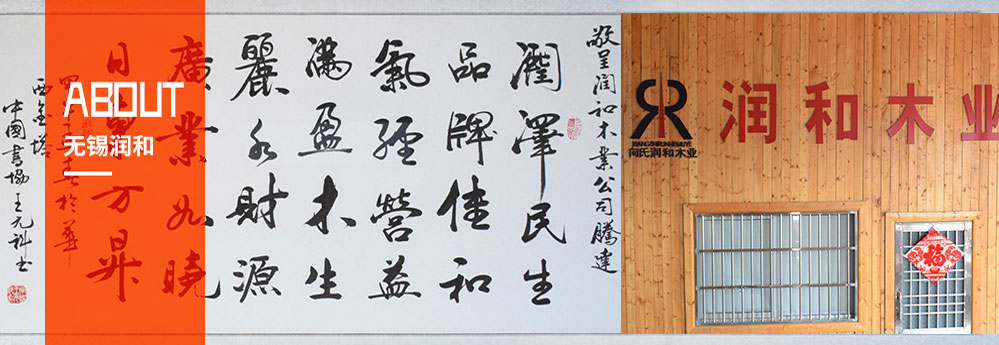 ABOUT
无锡润和
敬呈润和木業公司騰達
潤澤民生
品牌佳和
氣經營益
滿盈木生
麗水財源
廣業如曉
日東方昇
於華
西金塔
中國書協王元科书
润和木业
XIANGSHIRUNHEMUYE
向氏润和木业
福